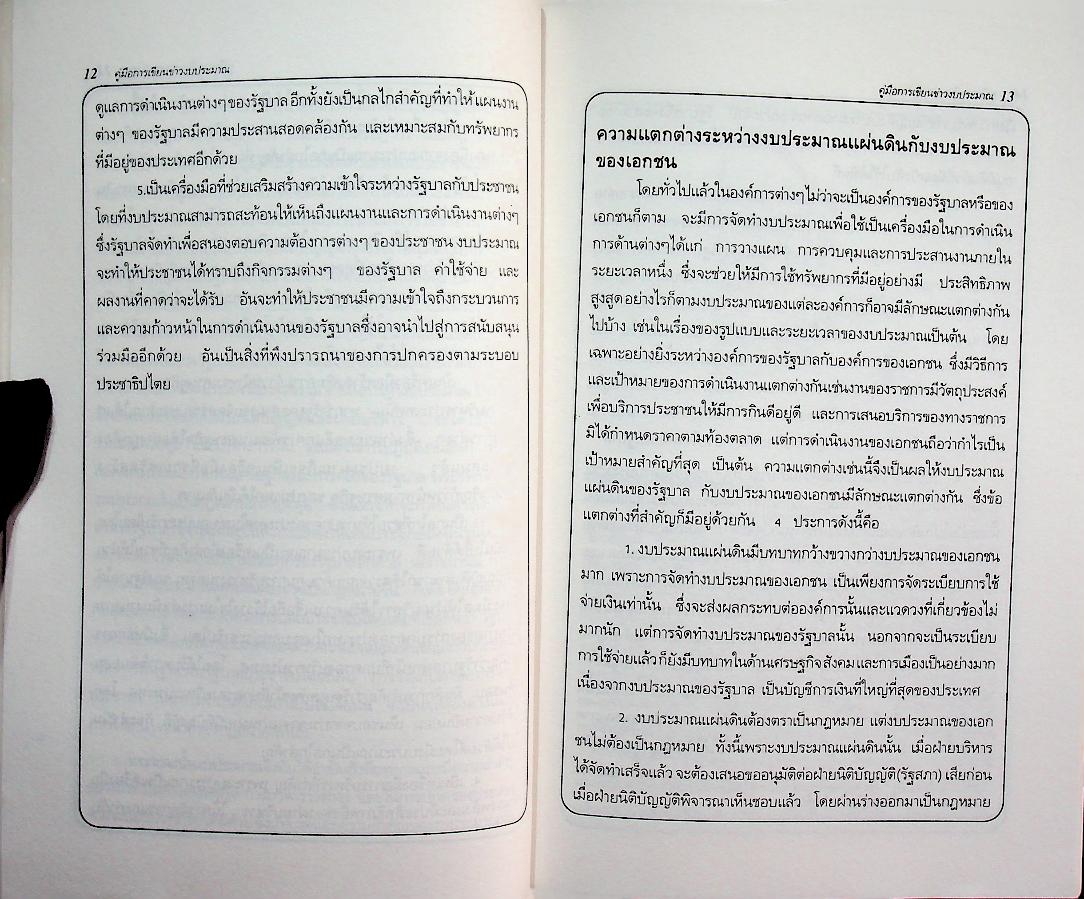 12 คู่มือการเขียนข่าวงบประมาณ
ดูแลการดำเนินงานต่างๆ ของรัฐบาล อีกทั้งยังเป็นกลไกสำคัญที่ทำให้แผนงาน
ต่างๆ ของรัฐบาลมีความประสานสอดคล้องกัน และเหมาะสมกับทรัพยากร
ที่มีอยู่ของประเทศอีกด้วย
5.เป็นเครื่องมือที่ช่วยเสริมสร้างความเข้าใจระหว่างรัฐบาลกับประชาชน
โดยที่งบประมาณสามารถสะท้อนให้เห็นถึงแผนงานและการดำเนินงานต่างๆ
ซึ่งรัฐบาลจัดทำเพื่อสนองตอบความต้องการต่างๆ ของประชาชน งบประมาณ
จะทำให้ประชาชนได้ทราบถึงกิจกรรมต่างๆ ของรัฐบาล ค่าใช้จ่าย และ
ผลงานที่คาดว่าจะได้รับ อันจะทำให้ประชาชนมีความเข้าใจถึงกระบวนการ
และความก้าวหน้าในการดำเนินงานของรัฐบาลซึ่งอาจนำไปสู่การสนับสนุน
ร่วมมืออีกด้วย อันเป็นสิ่งที่พึงปรารถนาของการปกครองตามระบอบ
ประชาธิปไตย
คู่มือการเขียนข่าวงบประมาณ 13
ความแตกต่างระหว่างงบประมาณแผ่นดินกับงบประมาณ
ของเอกชน
โดยทั่วไปแล้วในองค์การต่างๆไม่ว่าจะเป็นองค์การของรัฐบาลหรือของ
เอกชนก็ตาม จะมีการจัดทำงบประมาณเพื่อใช้เป็นเครื่องมือในการดำเนิน
การด้านต่างๆได้แก่ การวางแผน การควบคุมและการประสานงานภายใน
ระยะเวลาหนึ่ง ซึ่งจะช่วยให้มีการใช้ทรัพยากรที่มีอยู่อย่างมี ประสิทธิภาพ
สูงสูด อย่างไรก็ตามงบประมาณของแต่ละองค์การก็อาจมีลักษณะแตกต่างกัน
ไปบ้าง เช่นในเรื่องของรูปแบบและระยะเวลาของงบประมาณเป็นต้น โดย
เฉพาะอย่างยิ่งระหว่างองค์การของรัฐบาลกับองค์การของเอกชน ซึ่งมีวิธีการ
และเป้าหมายของการดำเนินงานแตกต่างกันเช่นงานของราชการมีวัตถุประสงค์
เพื่อบริการประชาชนให้มีการกินดีอยู่ดี และการเสนอบริการของทางราชการ
มิได้กำหนดราคาตามท้องตลาด แต่การดำเนินงานของเอกชนถือว่ากำไรเป็น
เป้าหมายสำคัญที่สุด เป็นต้น ความแตกต่างเช่นนี้จึงเป็นผลให้งบประมาณ
แผ่นดินของรัฐบาล กับงบประมาณของเอกชนมีลักษณะแตกต่างกัน ซึ่งข้อ
แตกต่างที่สำคัญก็มีอยู่ด้วยกัน 4 ประการดังนี้คือ
1. งบประมาณแผ่นดินมีบทบาทกว้างขวางกว่างบประมาณของเอกชน
มาก เพราะการจัดทำงบประมาณของเอกชน เป็นเพียงการจัดระเบียบการใช้
จ่ายเงินเท่านั้น ซึ่งจะส่งผลกระทบต่อองค์การนั้นและแวดวงที่เกี่ยวข้องไม่
มากนัก แต่การจัดทำงบประมาณของรัฐบาลนั้น นอกจากจะเป็นระเบียบ
การใช้จ่ายแล้ว ก็ยังมีบทบาทในด้านเศรษฐกิจ สังคม และการเมืองเป็นอย่างมาก
เนื่องจากงบประมาณของรัฐบาล เป็นบัญชีการเงินที่ใหญ่ที่สุดของประเทศ
2. งบประมาณแผ่นดินต้องตราเป็นกฎหมาย แต่งบประมาณของเอก
ชนไม่ต้องเป็นกฎหมาย ทั้งนี้เพราะงบประมาณแผ่นดินนั้น เมื่อฝ่ายบริหาร
ได้จัดทำเสร็จแล้ว จะต้องเสนอขออนุมัติต่อฝ่ายนิติบัญญัติ(รัฐสภา) เสียก่อน
เมื่อฝ่ายนิติบัญญัติพิจารณาเห็นชอบแล้ว โดยผ่านร่างออกมาเป็นกฎหมาย